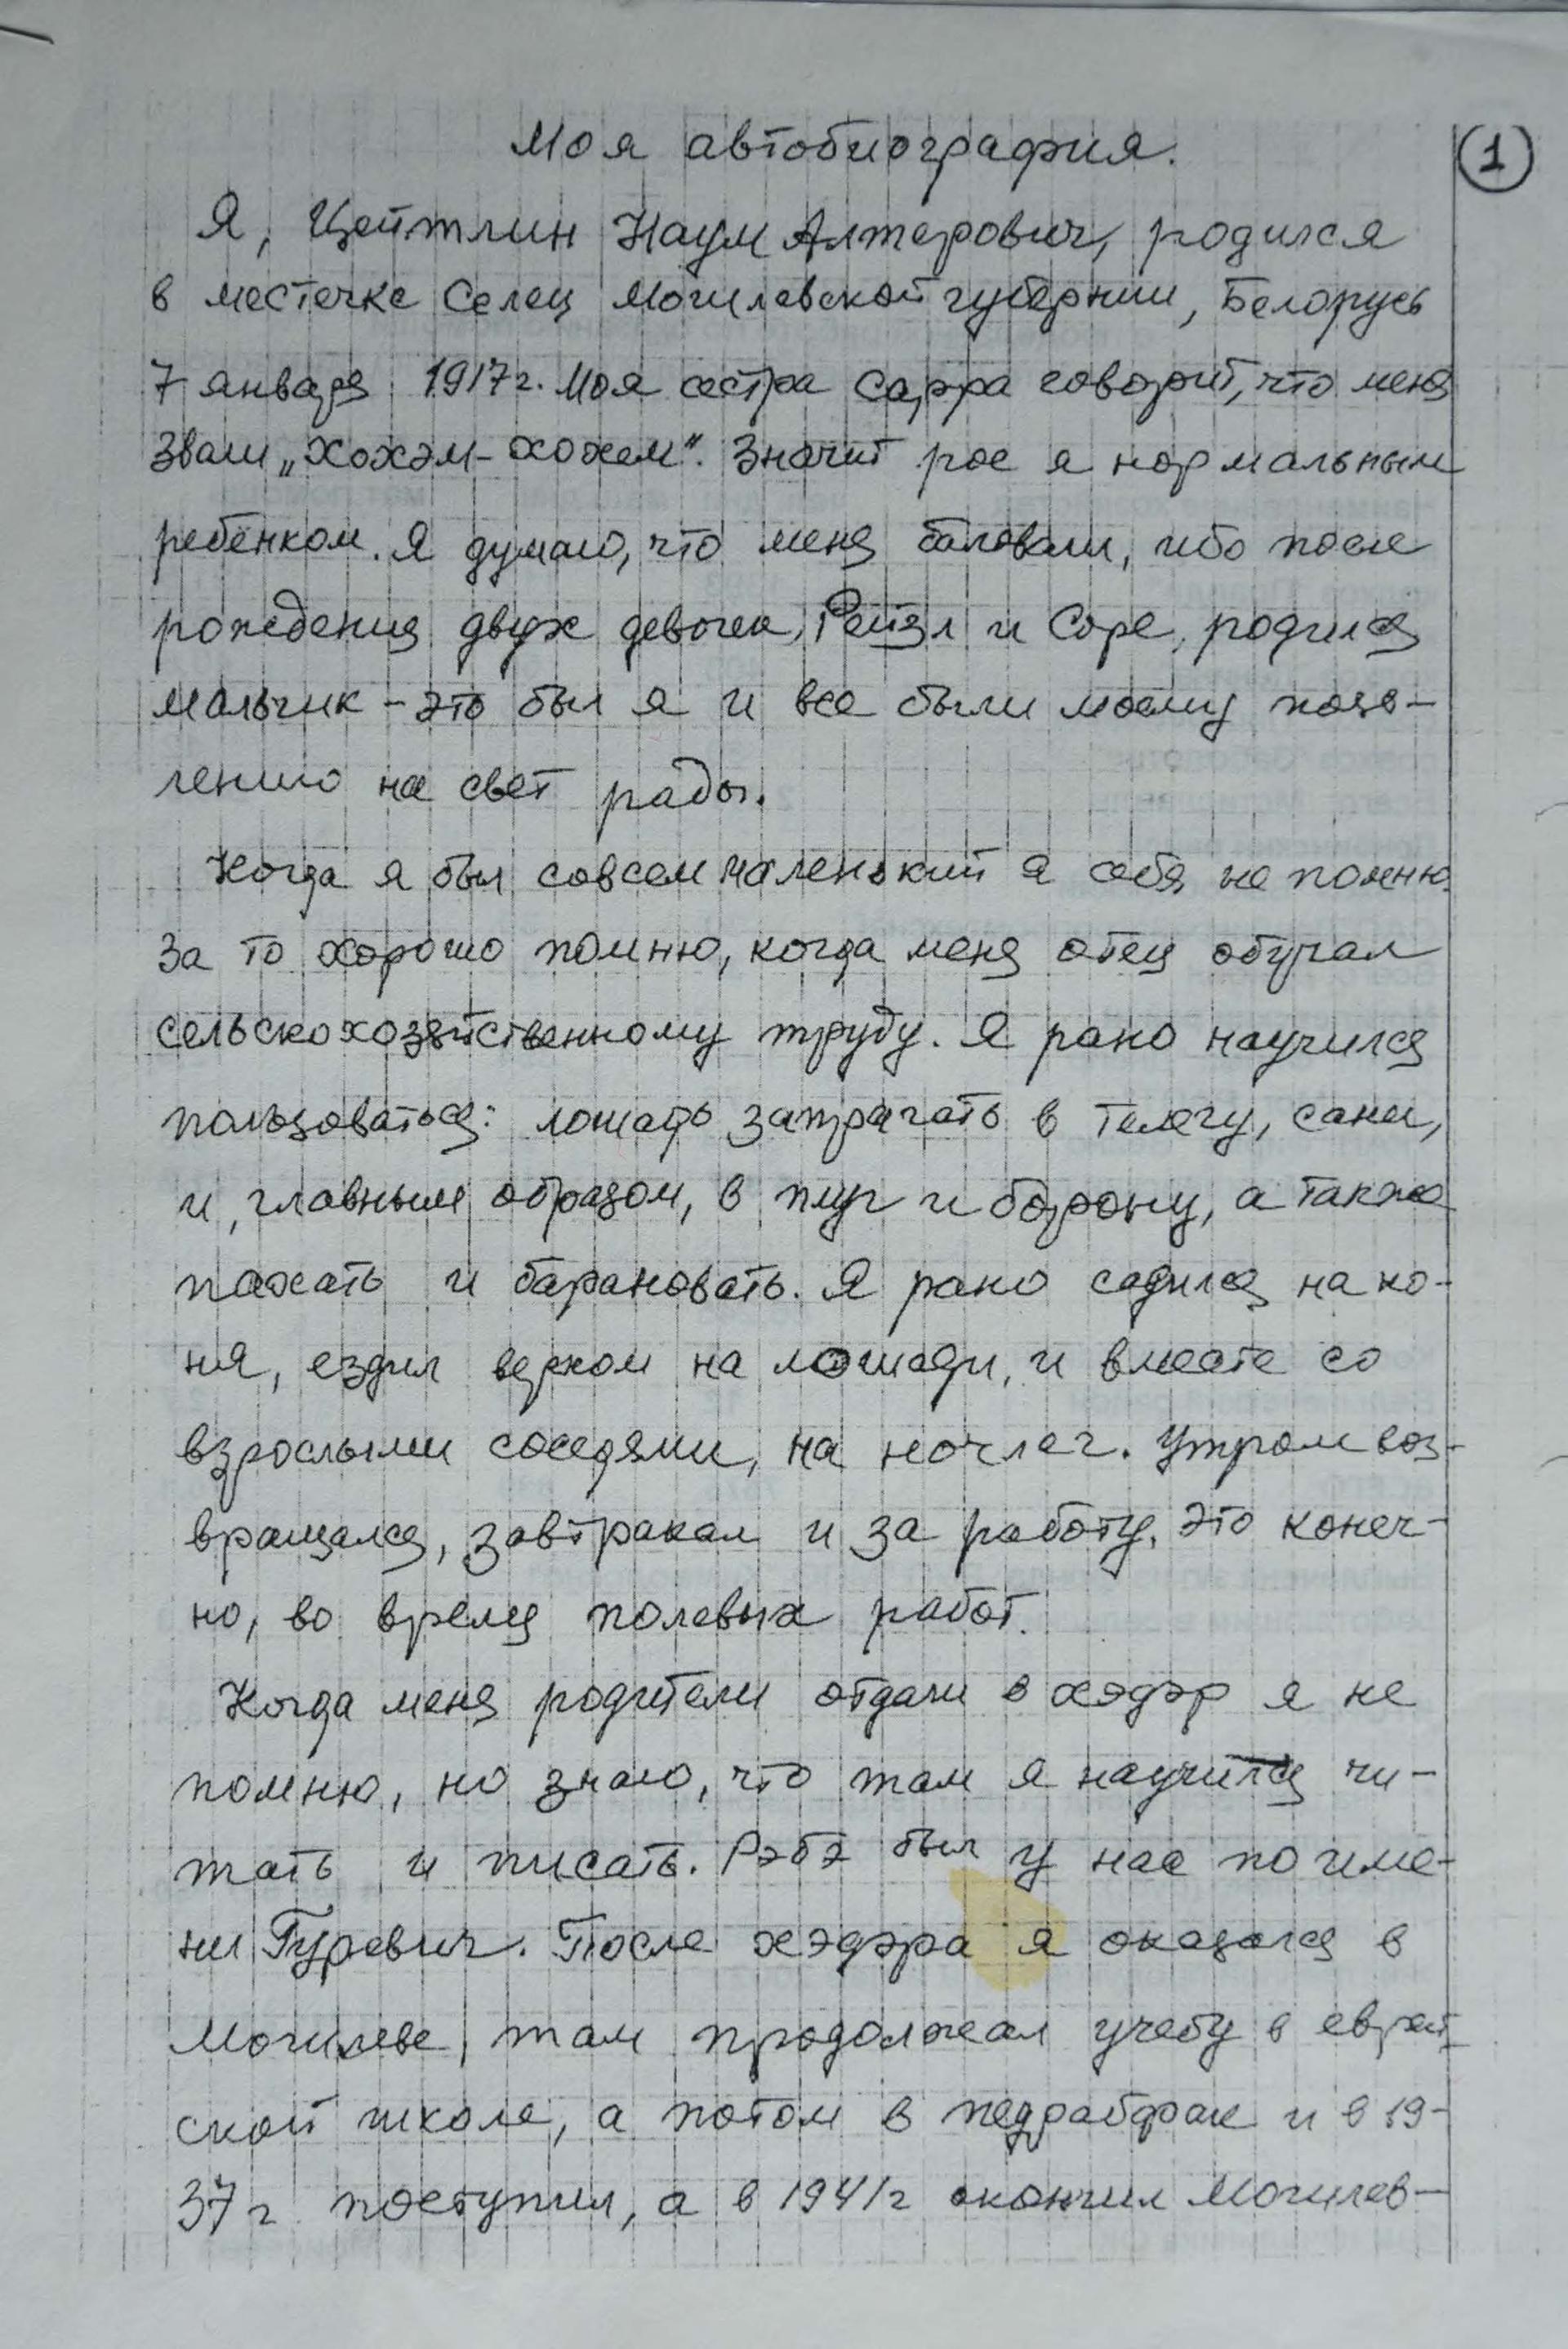 Моя автобиография.
1
Я, Цейтлин Наум Алтерович, родился
в местечке Селец Могилевской губернии, Белорусь
7 января 1917г. Моя сестра Сарра говорит, что меня
звали „Хохэм-хохем". Значит рос я нормальным
ребёнком. Я думаю, что меня баловали, ибо после
рождения двух девочек, Рейзл и Соре, родился
мальчик – это был я и все были моему появ-
лению на свет рады.
Когда я был совсем маленький я себя не помню.
За то хорошо помню, когда меня отец обучал
сельскохозяйственному труду. Я рано научился
пользоваться: лошадь запрягать в телегу, сани,
и, главным образом, в плуг и борону, а также
пахать и барановать. Я рано садился на ко-
ня, ездил верхом на лошади, и вместе со
взрослыми соседями, на ночлег. Утром воз-
вращался, завтракал и за работу. Это конеч-
но, во время полевых работ.
Когда меня родители отдали в хэдэр я не
помню, но знаю, что там я научился чи-
тать и писать. Рэбэ был у нас по име-
ни Гуревич. После хэдэра я оказался в
Могилеве, там продолжал учебу в еврей-
ской школе, а потом в педрабфак и в 19-
37г поступил, а в 1941г окончил Могилев-